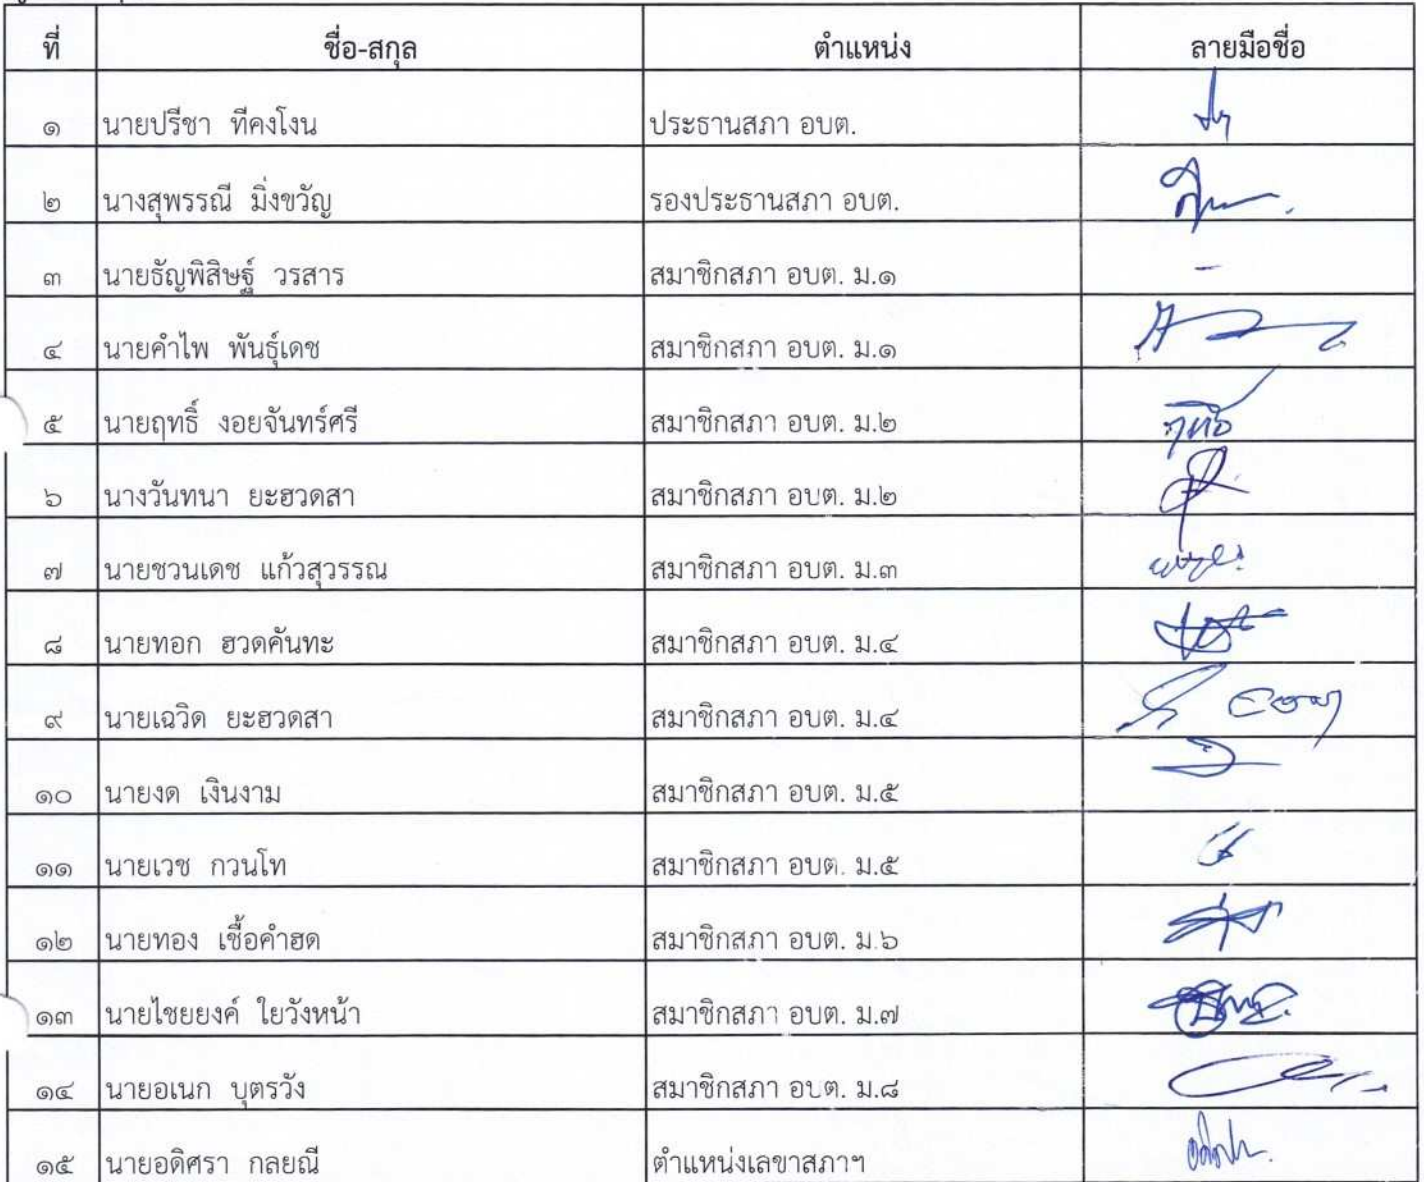 ที่ ชื่อ-สกุล ตำแหน่ง ลายมือชื่อ
๑ นายปรีชา ทีคงโงน ประธานสภา อบต.
๒ นางสุพรรณี มิ่งขวัญ รองประธานสภา อบต.
๓ นายธัญพิสิษฐ์ วรสาร สมาชิกสภา อบต. ม.๑ -
๔ นายคำไพ พันธุ์เดช สมาชิกสภา อบต. ม.๑
๕ นายฤทธิ์ งอยจันทร์ศรี สมาชิกสภา อบต. ม.๒ ฤทธิ์
๖ นางวันทนา ยะฮวดสา สมาชิกสภา อบต. ม.๒
๗ นายชวนเดช แก้วสุวรรณ สมาชิกสภา อบต. ม.๓
๘ นายทอก ฮวดคันทะ สมาชิกสภา อบต. ม.๔
๙ นายเฉวิด ยะฮวดสา สมาชิกสภา อบต. ม.๔
๑๐ นายงด เงินงาม สมาชิกสภา อบต. ม.๕
๑๑ นายเวช กวนโท สมาชิกสภา อบต. ม.๕
๑๒ นายทอง เชื้อคำฮด สมาชิกสภา อบต. ม.๖
๑๓ นายไชยยงค์ ใยวังหน้า สมาชิกสภา อบต. ม.๗
๑๔ นายอเนก บุตรวัง สมาชิกสภา อบต. ม.๘
๑๕ นายอดิศรา กลยณี ตำแหน่งเลขาสภาฯ